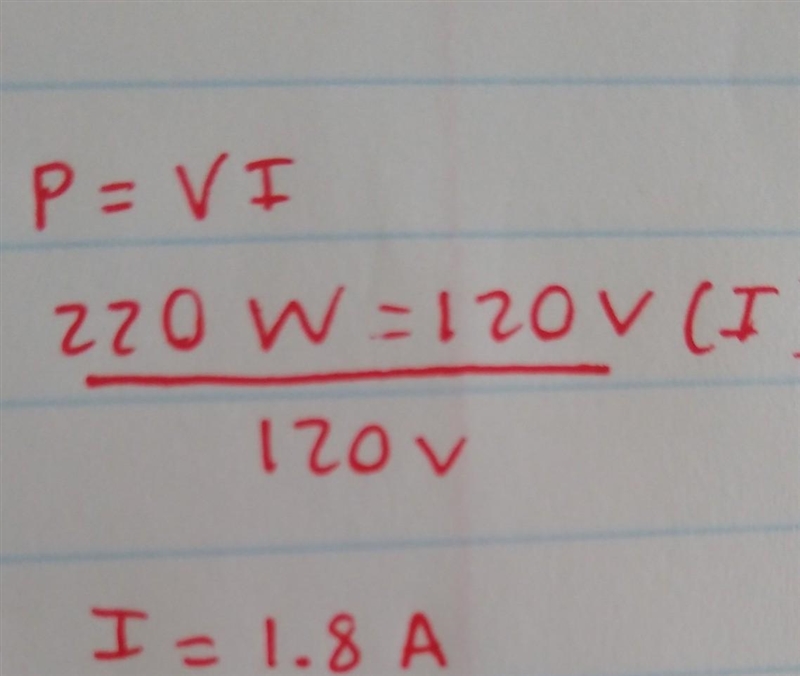 P = VI
220 W = 120 V (I
120 V
I = 1.8 A